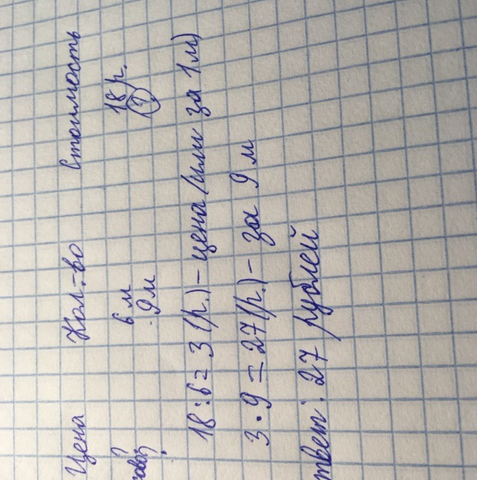 Цена Кол.-во Стоимость
? 6 м 18 р.
? 9 м ?
18 : 6 = 3 (р.) - цена (или за 1 м)
3 • 9 = 27 (р.) - за 9 м
твет : 27 рублей